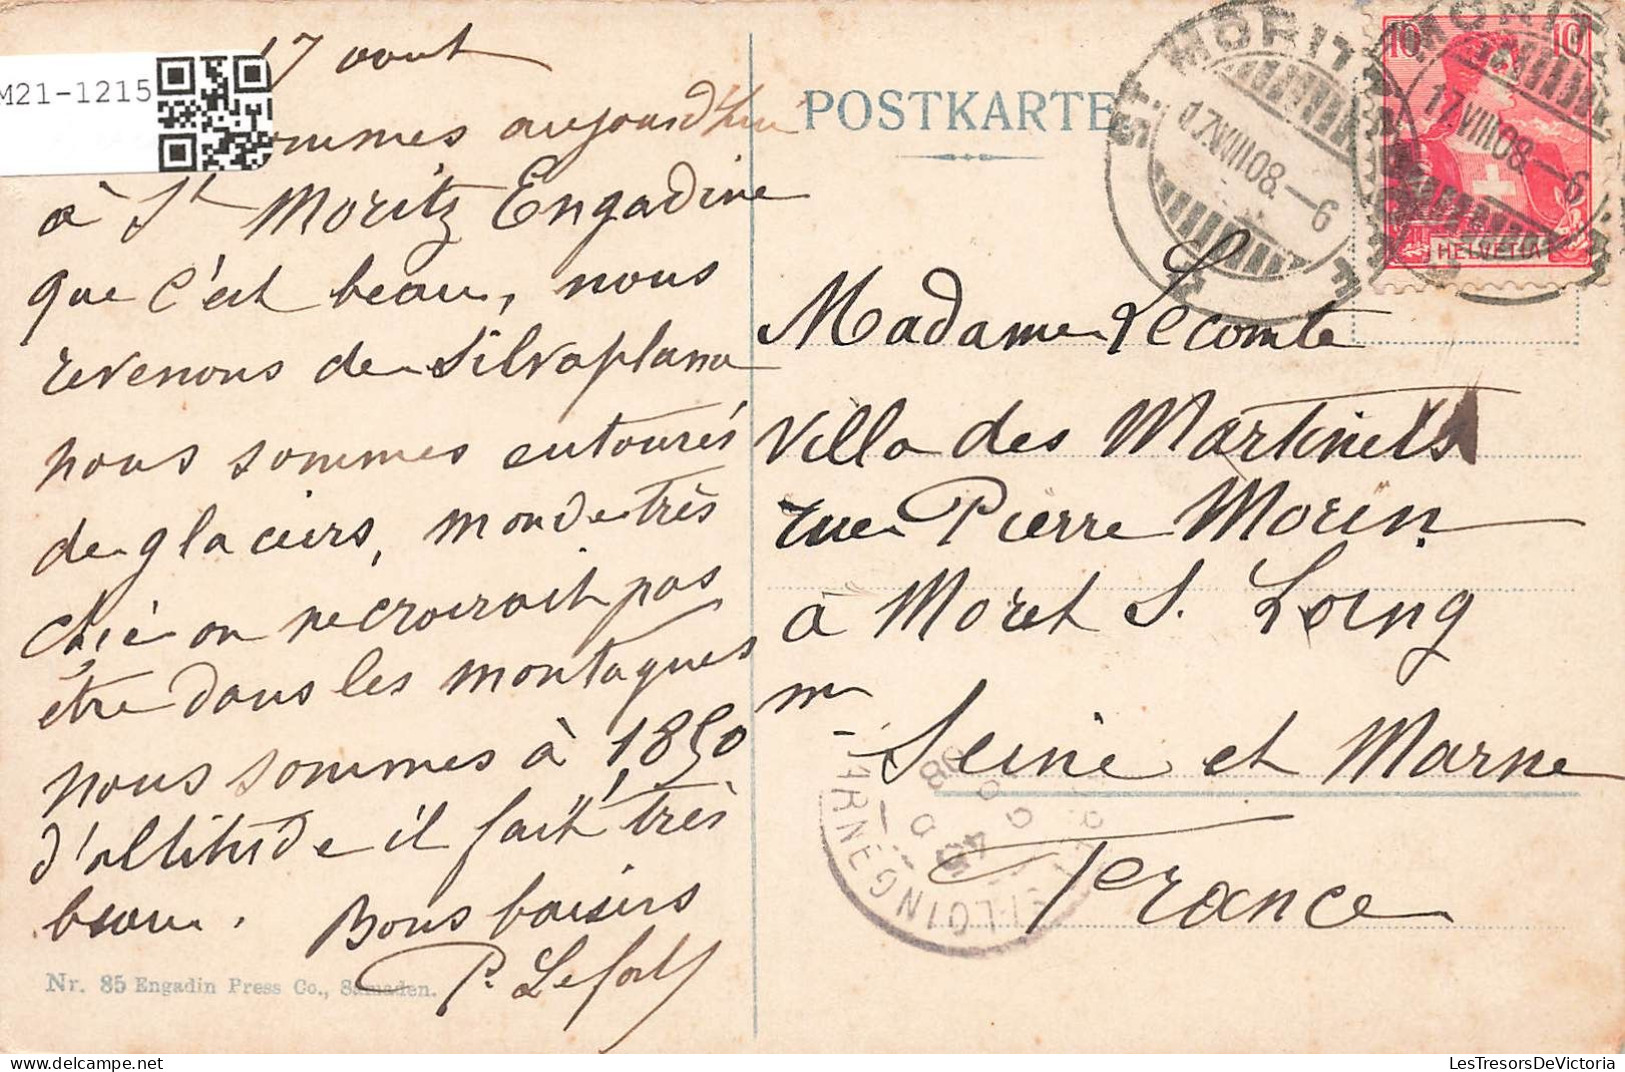 M21-1215
17 aout
sommes aujourd'hui
à St Moritz Engadine
que c'est beau, nous
revenons de Silvaplana
nous sommes entourés
de glaciers, monde très
chic on ne croirait pas
être dans les montagnes
nous sommes à 1850
d'altitude il fait très
beau. Bons baisers
P. Lefort
Nr. 85 Engadin Press Co., Samaden.
POSTKARTE
ST. MORITZ
17.VIII.08.-6
MORITZ
17.VIII.08.-6
10 10
HELVETIA
Madame Lecomte
Villa des Martinets
rue Pierre Morin
à Moret s. Loing
Seine et Marne
France
LesTresorsDeVictoria